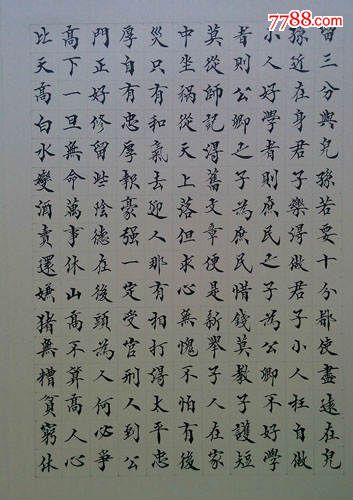 7788.com
留三分與兒孫若要十分都使盡遠在兒
孫近在身君子樂得做君子小人枉自做
小人好學者則庶民之子為公卿不好學
者則公卿之子為庶民惜錢莫教子護短
莫從師記得舊文章便是新舉子人在家
中坐禍從天上落但求心無愧不怕有後
災只有和氣去迎人那有相打得太平忠
厚自有忠厚報豪强一定受官刑人到公
門正好修留些陰德在後頭為人何必爭
高下一旦無命萬事休山高不算高人心
比天高白水變酒賣還嫌猪無糟貧窮休